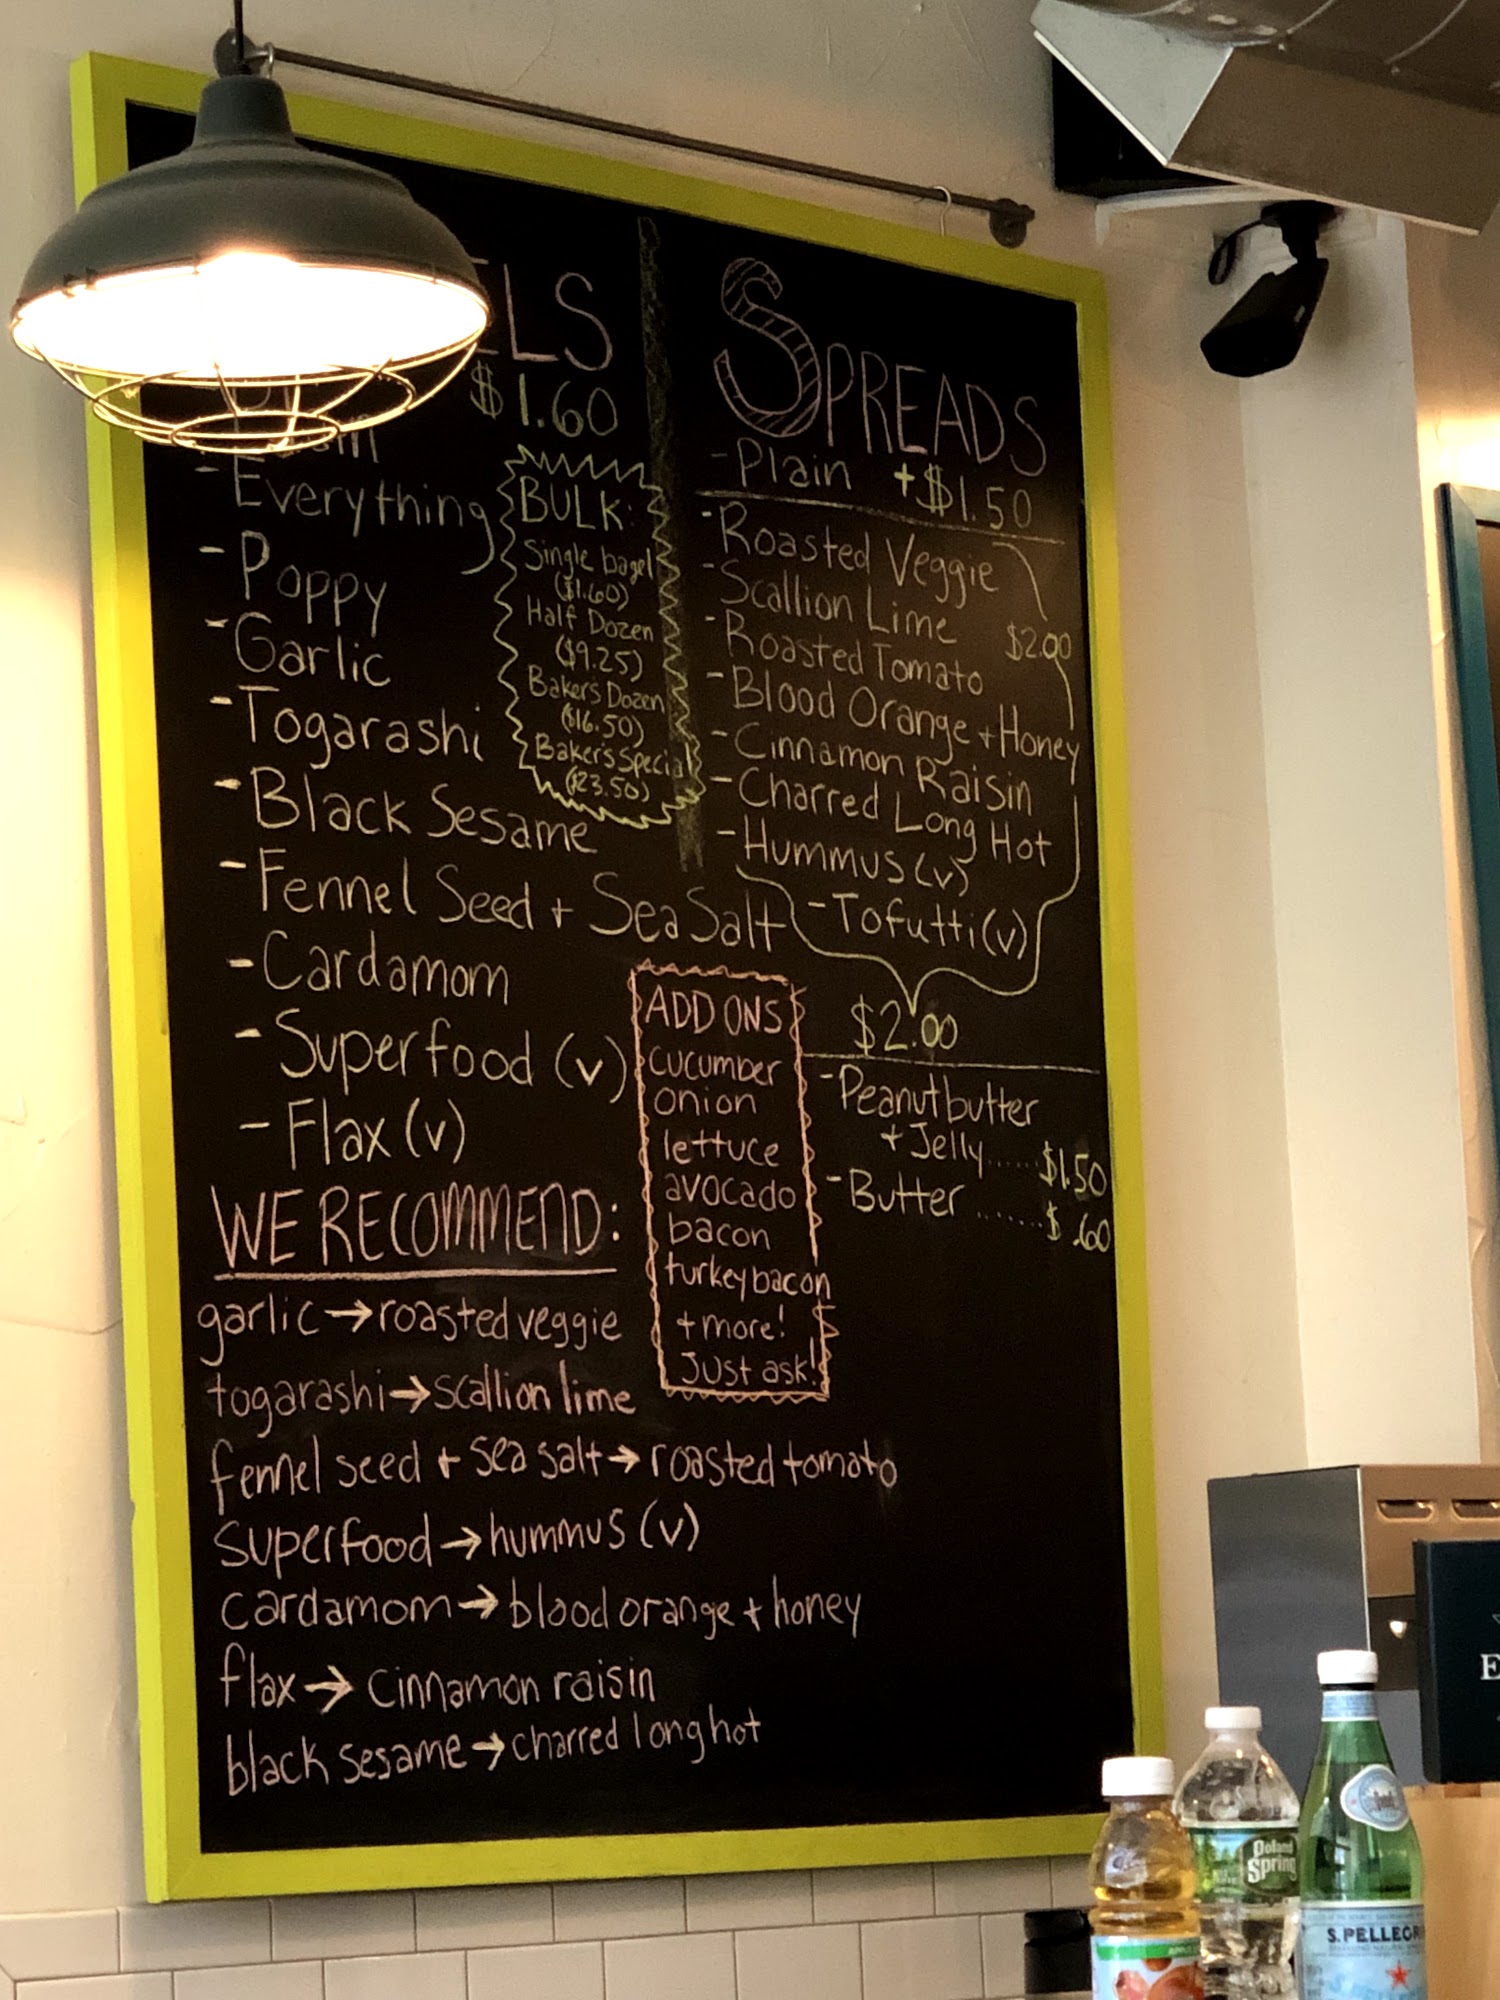 ELS
$1.60
- Everything
- Poppy
- Garlic
- Togarashi
- Black Sesame
- Fennel Seed + Sea Salt
- Cardamom
- Superfood (v)
- Flax (v)
BULK:
Single bagel
($1.60)
Half Dozen
($9.25)
Baker's Dozen
($16.50)
Baker's Special
($23.50)
SPREADS
- Plain +$1.50
- Roasted Veggie
- Scallion Lime
- Roasted Tomato
- Blood Orange + Honey
- Cinnamon Raisin
- Charred Long Hot
- Hummus (v)
- Tofutti (v)
$2.00
$2.00
- Peanut butter
+ Jelly...... $1.50
- Butter ....... $ .60
ADD ONS
cucumber
onion
lettuce
avocado
bacon
turkey bacon
+ more!
Just ask!
WE RECOMMEND:
garlic → roasted veggie
togarashi → scallion lime
fennel seed + sea salt → roasted tomato
superfood → hummus (v)
cardamom → blood orange + honey
flax → cinnamon raisin
black sesame → charred long hot
Poland
Spring
S.PELLEGR
E